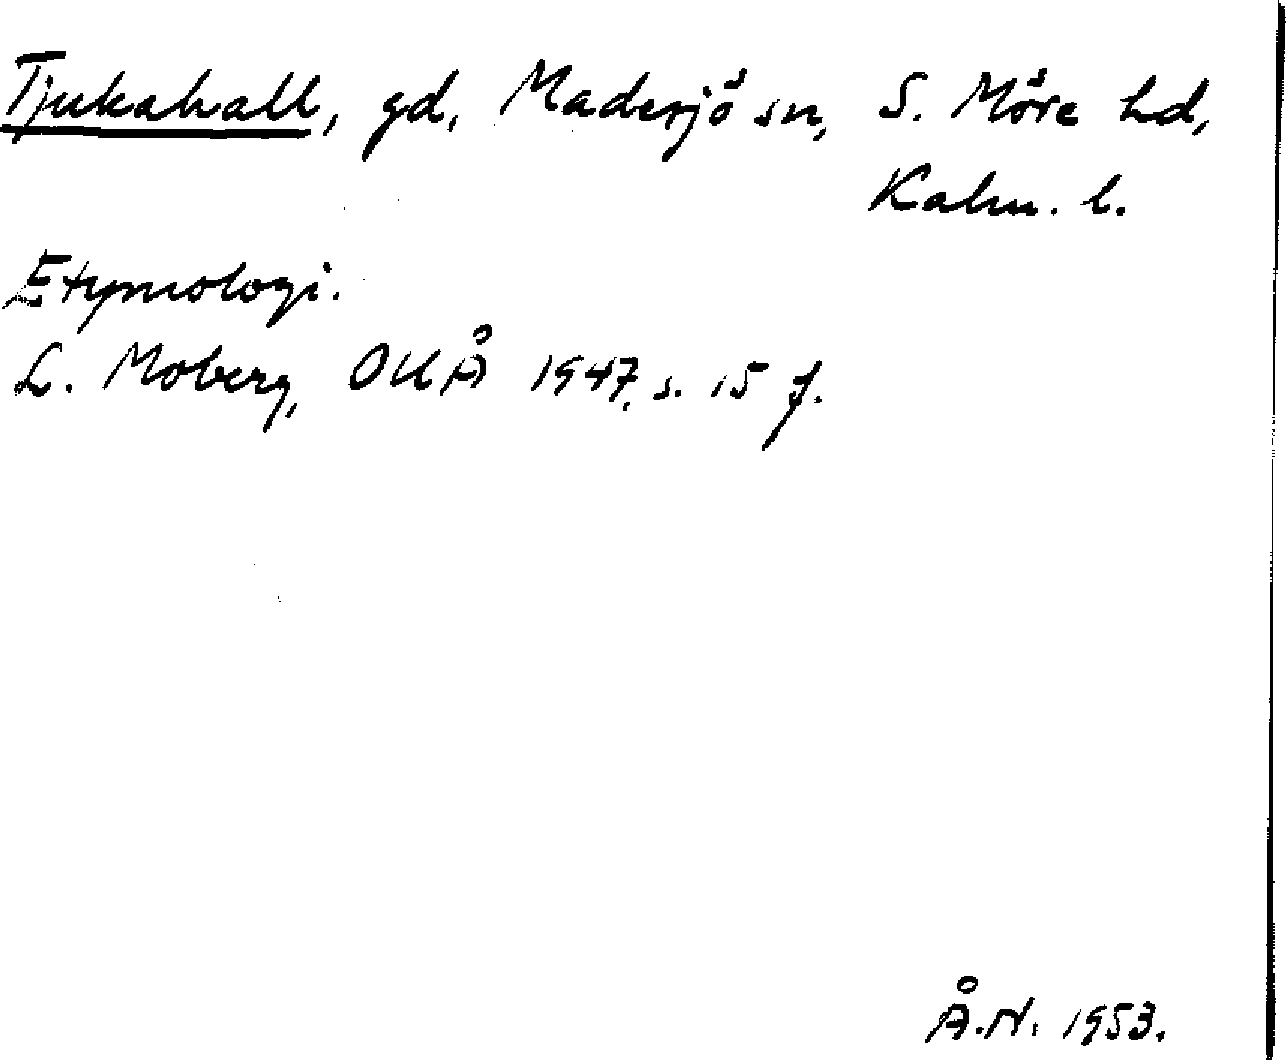 Tjukahall, gd, Madesjö sn, S. Möre hd,
Kalm. l.
Etymologi.
L. Moberg, OUÅ 1947, s. 15 f.
Å.N. 1953.